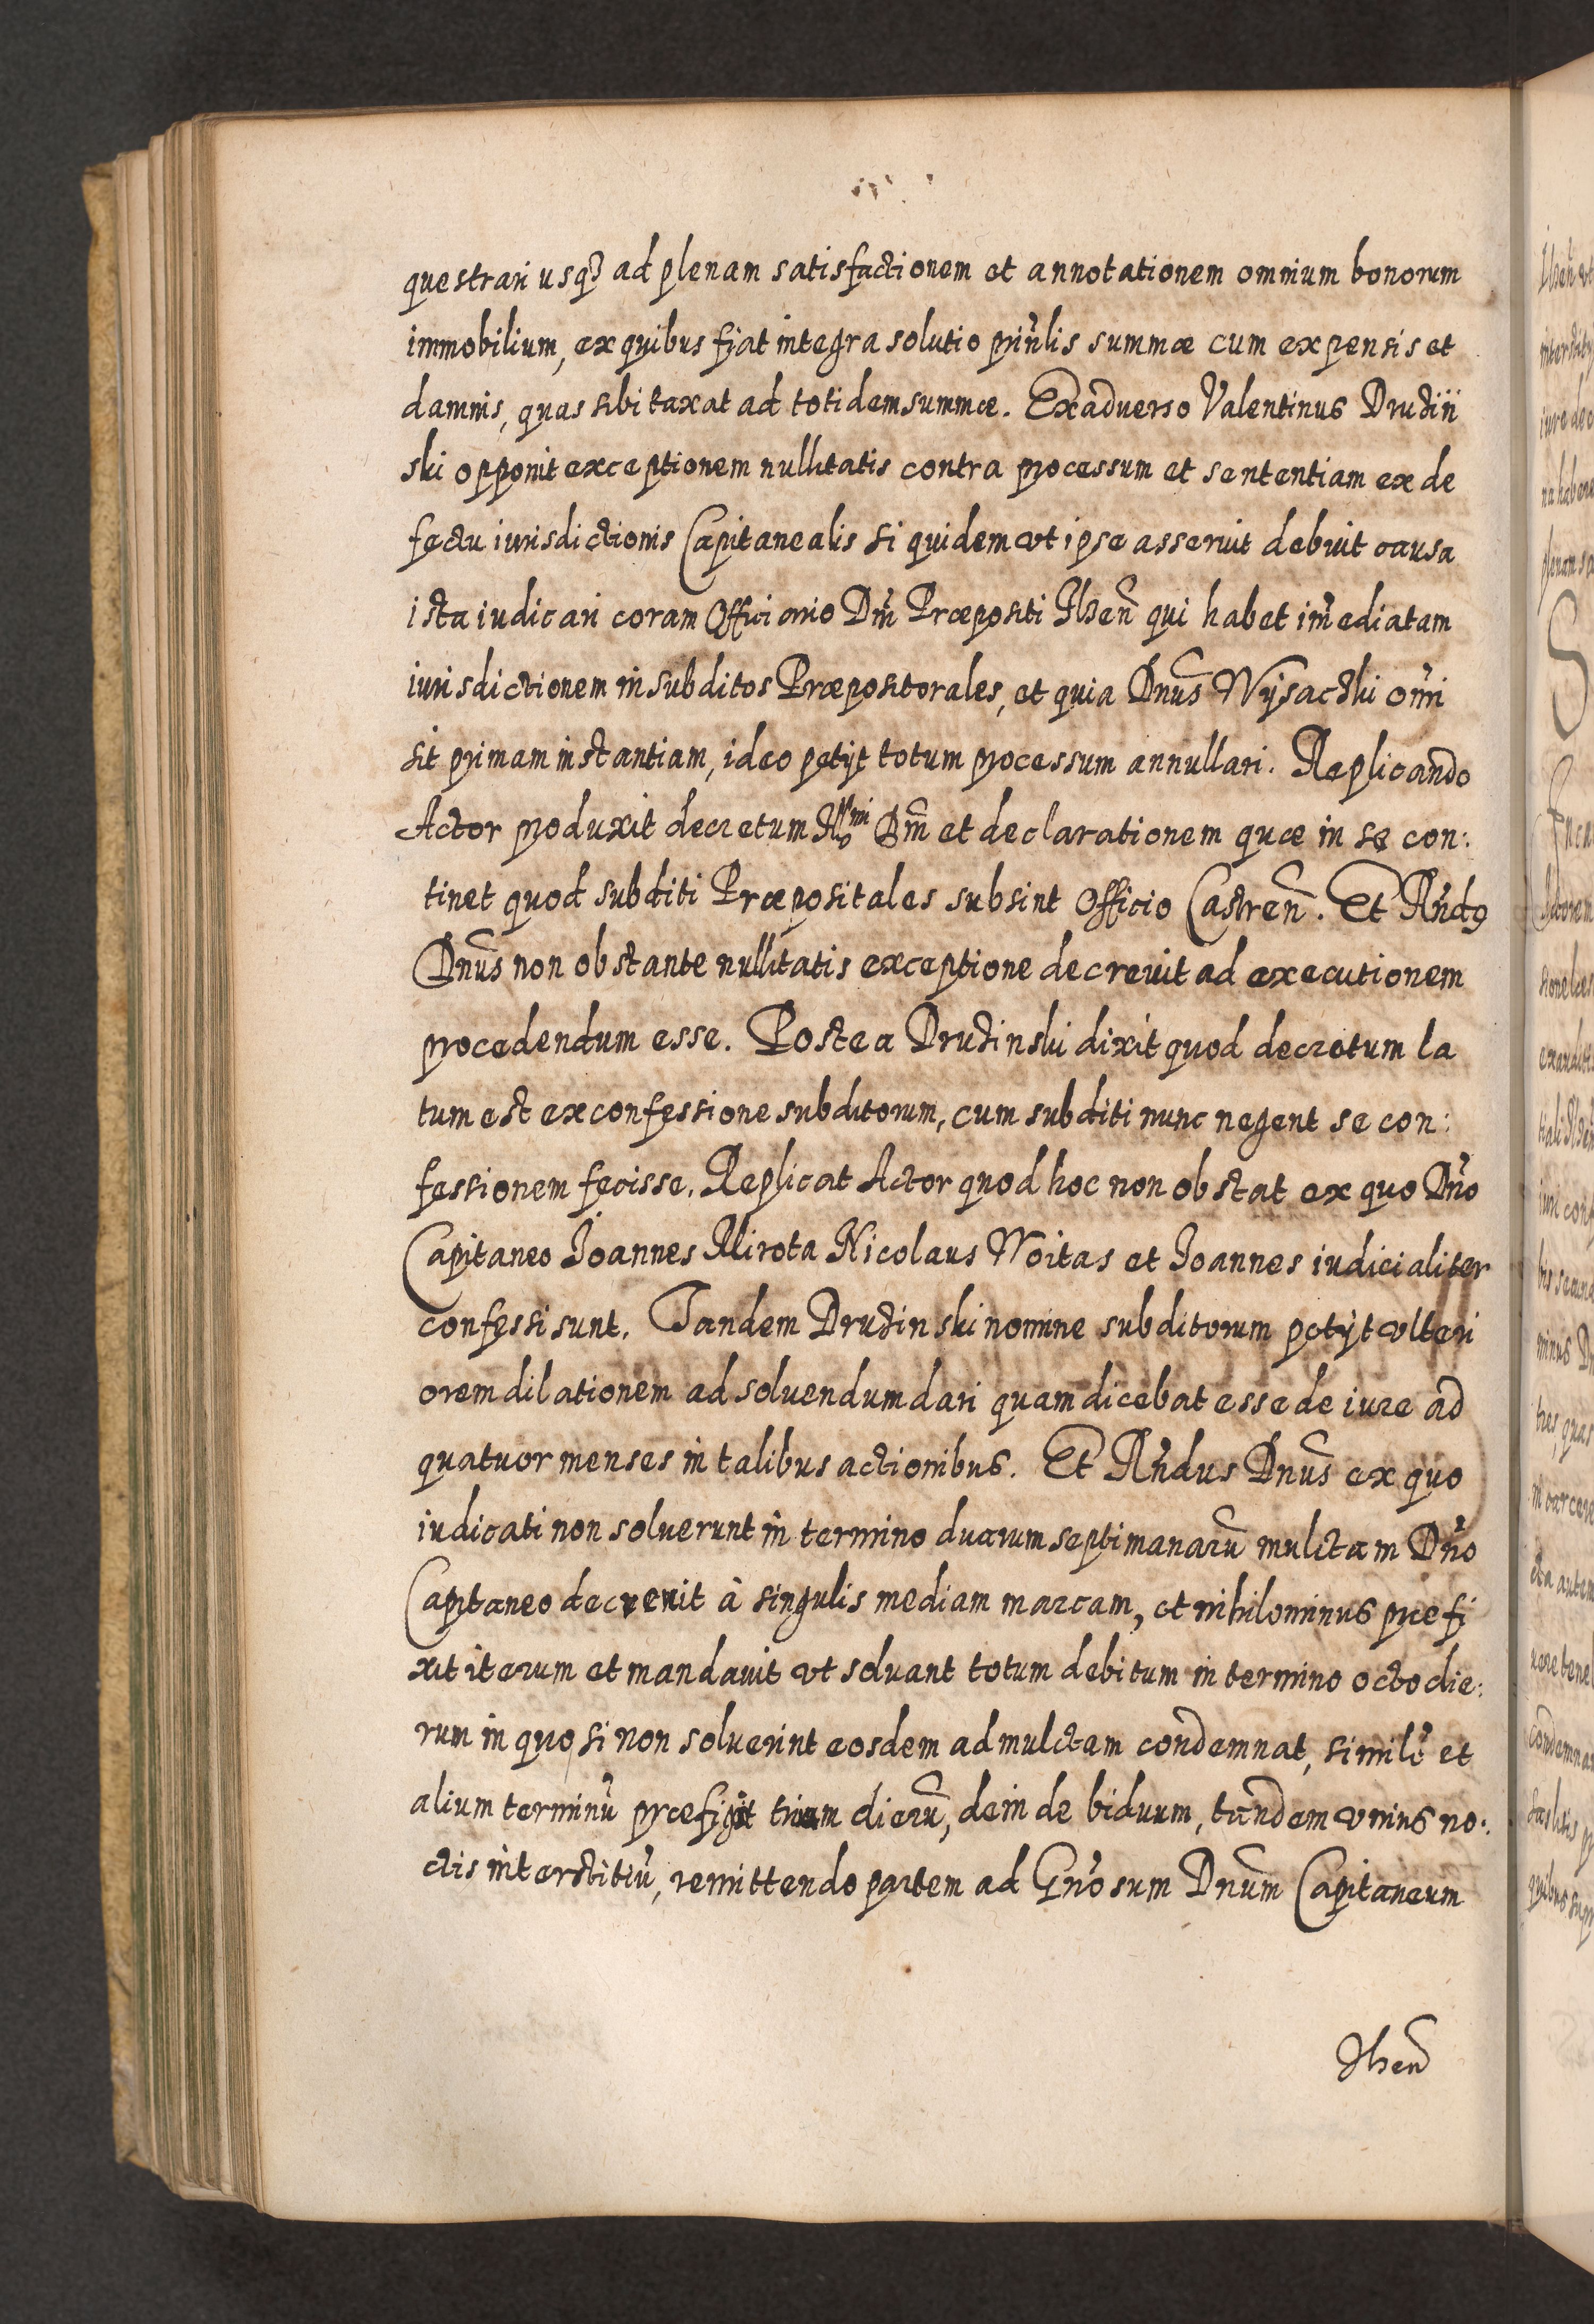 questrari usq3 ad plenam satisfactionem et annotationem omnium bonorum
immobilium, ex quibus fiat integra solutio prin̄lis summæ cum expensis et
damnis, quas sibi taxat ad totidem summæ. Ex adverso Valentinus Drudiń
ski opponit exceptionem nullitatis contra processum et sententiam ex de
fectu iurisdictionis Capitanealis si quidem vt ipse asseruit debuit causa
ista iudicari coram Officiario Dn̄i Præpositi Ilzen̄ qui habet im̄ediatam
iurisdictionem in subditos Præpositorales, et quia Dnūs Wysactki om̄i
sit primam instantiam, ideo petijt totum processum annullari. Replicando
Actor produxit decretum Illmi Dn̄i et declarationem quæ in se con:
tinet quod subditi Præpositales subsint Officio Castren̄. Et Rn̄dꝯ
Dnūs non obstante nullitatis exceptione decreuit ad executionem
procedendum esse. Postea Drudinski dixit quod decretum la
tum est ex confessione subditorum, cum subditi nunc negent se con:
fessionem fecisse. Replicat Actor quod hoc non obstat ex quo Dn̄o
Capitaneo Joannes Mirota Nicolaus Woitas et Joannes iudicialiter
confessi sunt. Tandem Drudinski nomine subditorum petijt vlteri
orem dilationem ad soluendum dari quam dicebat esse de iure ad
quatuor menses in talibus actionibus. Et Rn̄dus Dnūs ex quo
iudicati non soluerunt in termino duarum septimanarū mulctam Dn̄o
Capitaneo decreuit à singulis mediam marcam, et nihilominus præfi
xit iterum et mandauit vt soluant totum debitum in termino octo die:
rum in quo si non soluerint eosdem ad mulctam condemnat, simile᷒ et
alium terminū præfigit trium dierū, dein de biduum, tandem vnius no:
ctis interstitiū, remittendo partem ad Gn̄osum Dnūm Capitaneum
Ilzen̄